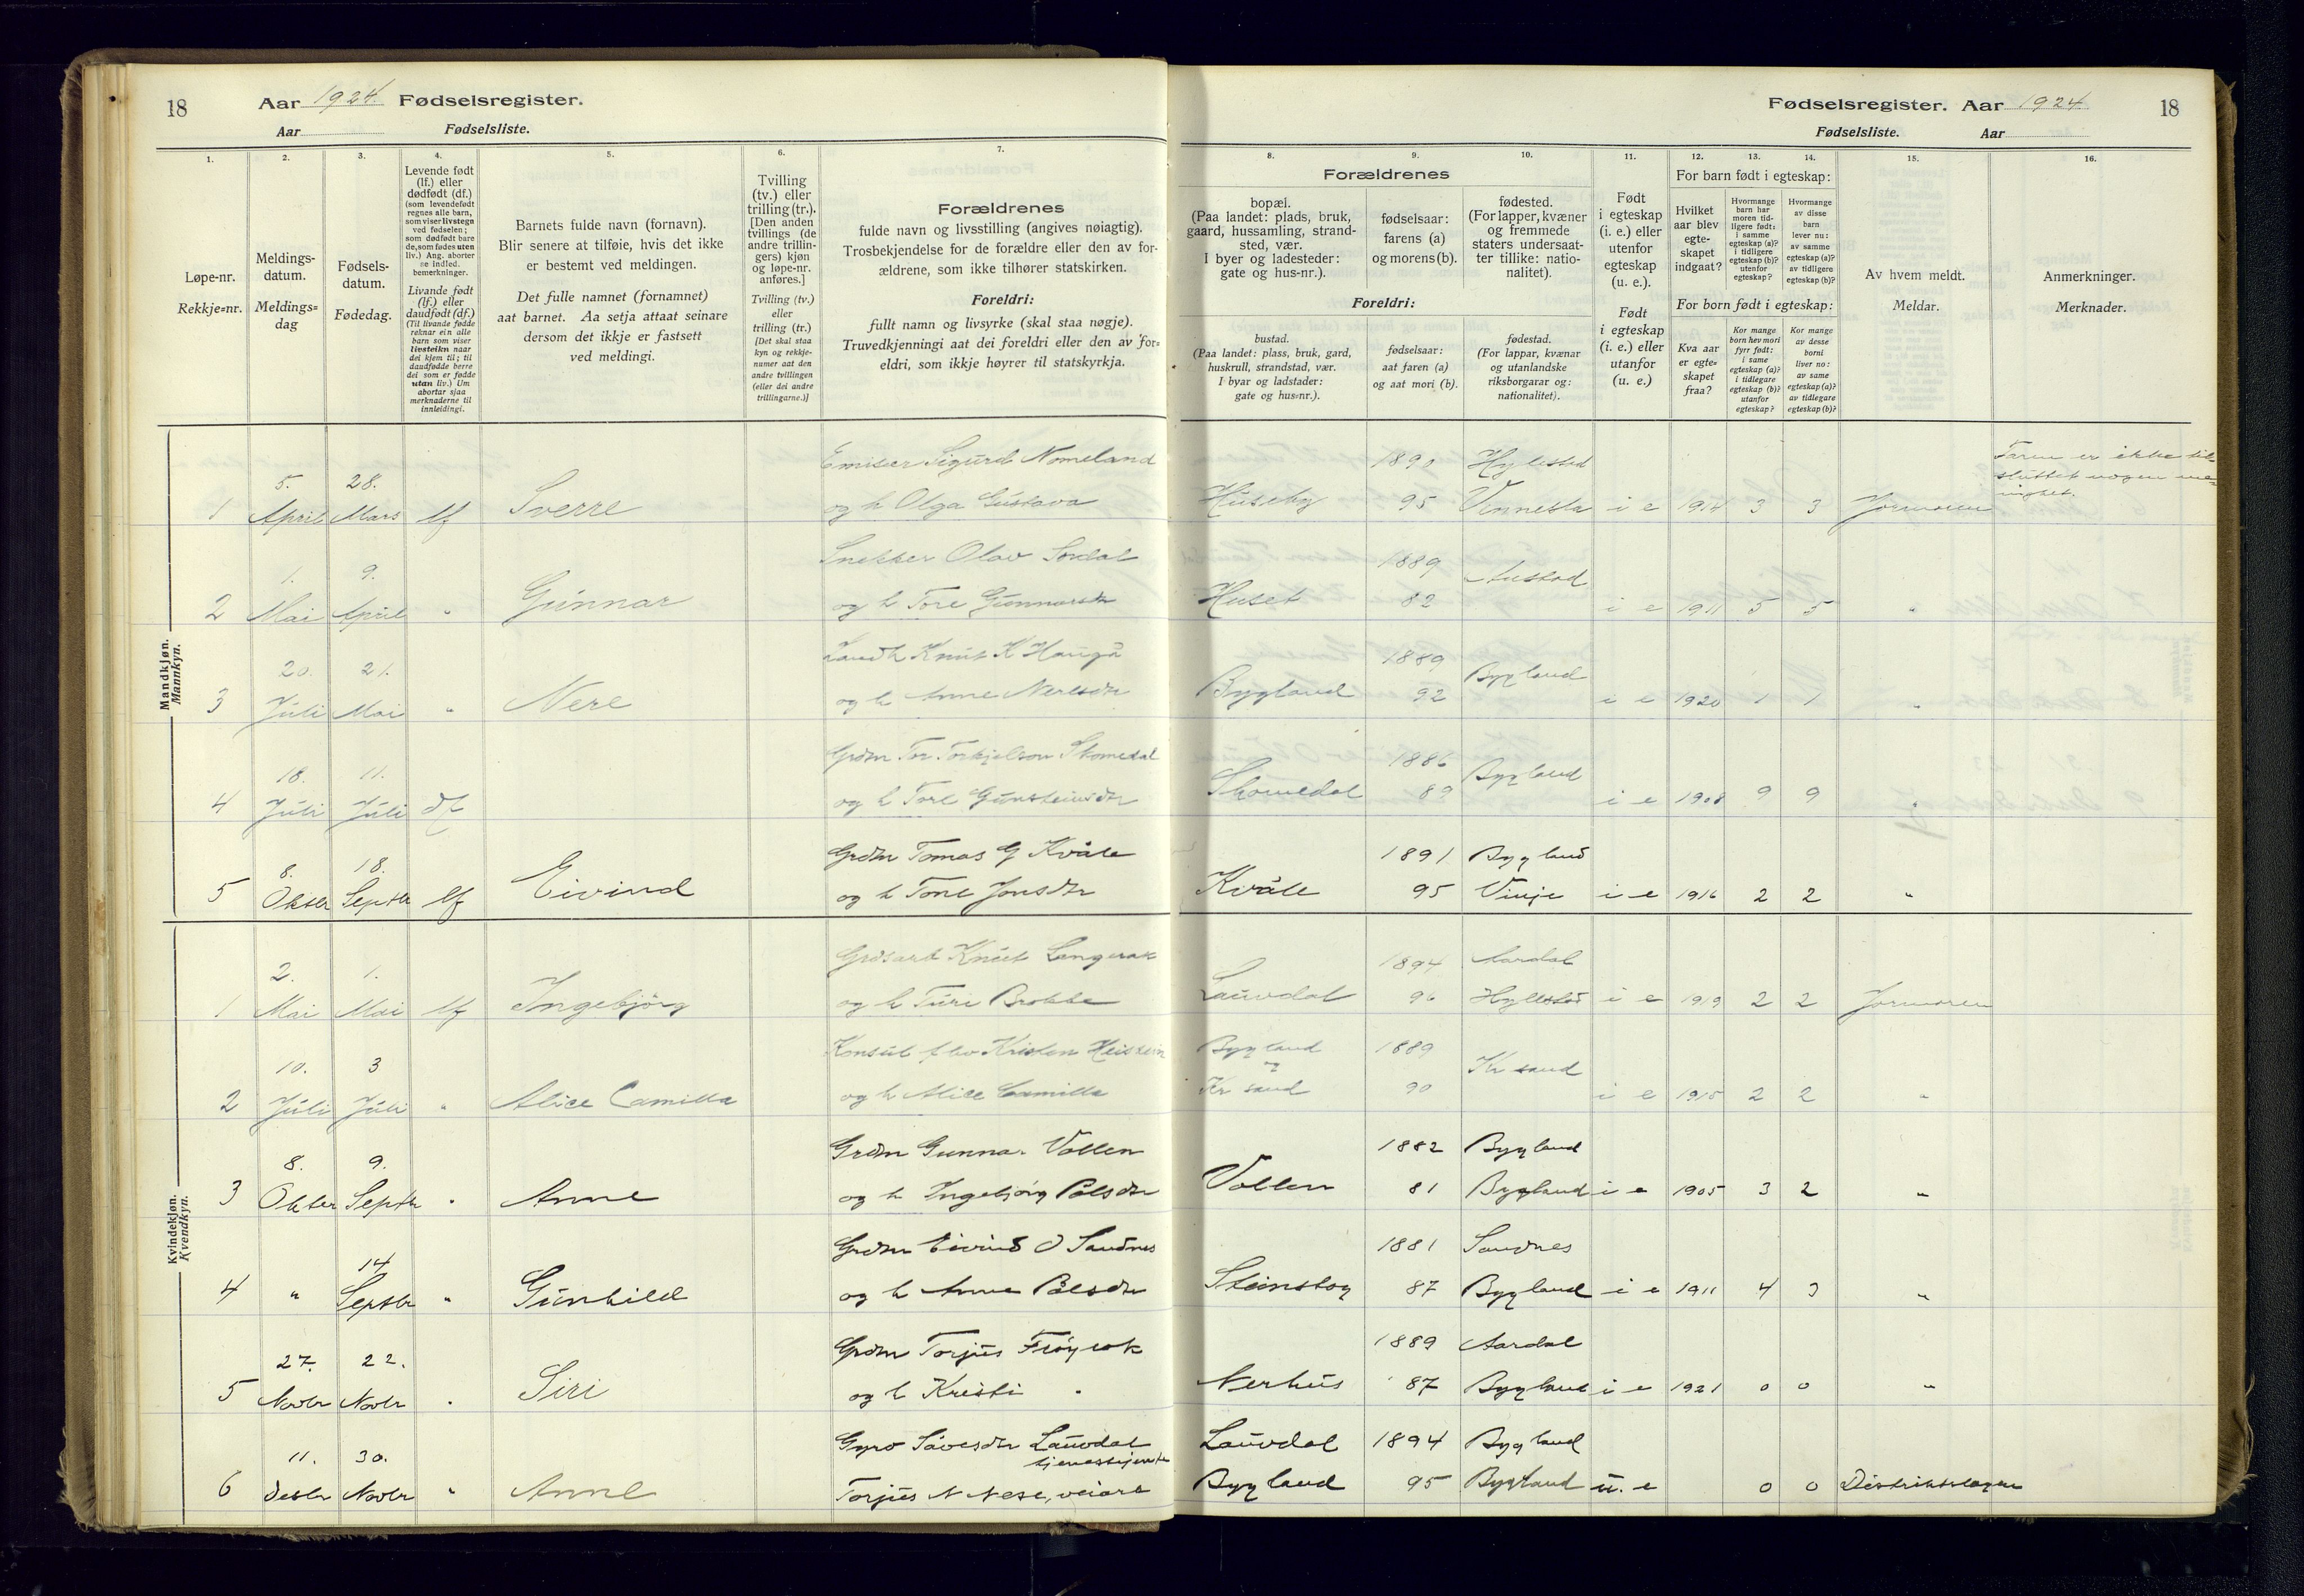 18
Aar 1924. Fødselsregister.
Aar Fødselsliste.
Fødselsregister. Aar 1924
18
Fødselsliste. Aar
1.
Løpe-nr.
Rekkje=nr.
2.
Meldings-
datum.
Meldings=
dag
3.
Fødsels-
datum.
Fødedag.
4.
Levende født
(lf.) eller
dødfødt (df.)
(som levendefødt
regnes alle barn,
som viser livstegn
ved fødselen;
som dødfødt bare
de, som fødes uten
liv.) Ang. aborter
se indled.
bemerkninger.
Livande født
(lf.) eller
daudfødt (df.)
(Til livande fødde
reknar ein alle
barn som viser
livsteikn naar
dei kjem til; til
daudfødde berre
dei som er fødde
utan liv.) Um
abortar sjaa
merknaderne til
innleidingi.
5.
Barnets fulde navn (fornavn).
Blir senere at tilføie, hvis det ikke
er bestemt ved meldingen.
Det fulle namnet (fornamnet)
aat barnet. Aa setja attaat seinare
dersom det ikkje er fastsett
ved meldingi.
6.
Tvilling
(tv.) eller
trilling (tr.).
[Den anden
tvillings (de
andre trillin-
gers) kjøn
og løpe-nr.
anføres.]
Tvilling (tv.)
eller
trilling (tr.)
[Det skal staa
kyn og rekkje-
numer aat den
andre tvillingen
(eller dei andre
trillingarne.)]
7.
Forældrenes
fulde navn og livsstilling (angives nøiagtig).
Trosbekjendelse for de forældre eller den av for-
ældrene, som ikke tilhører statskirken.
Foreldri:
fullt namn og livsyrke (skal staa nøgje).
Truvedkjenningi aat dei foreldri eller den av for=
eldri, som ikkje høyrer til statskyrkja.
8.
9.
10.
Forældrenes
bopæl.
(Paa landet: plads, bruk,
gaard, hussamling, strand-
sted, vær.
I byer og ladesteder:
gate og hus-nr.).
fødselsaar:
farens (a)
og morens (b).
fødested.
(For lapper, kvæner
og fremmede
staters undersaat-
ter tillike: natio-
nalitet).
Foreldri:
bustad.
(Paa landet: plass, bruk, gard,
huskrull, strandstad, vær.
I byar og ladstader:
gate og hus=nr.).
fødselsaar:
aat faren (a)
og aat mori (b).
fødestad.
(For lappar, kvænar
og utanlandske
riksborgarar og:
nationalitet).
11.
Født
i egteskap
(i. e.) eller
utenfor
egteskap
(u. e.).
Født
i egteskap
(i. e.) eller
utanfor
(u. e.)
12.
13.
14.
For barn født i egteskap:
Hvilket
aar blev
egte-
skapet
indgaat?
Hvormange
barn har
moren tid-
ligere født:
i samme
egteskap (a)?
i tidligere
egteskap (b)?
utenfor
egteskap?
Hvormange
av disse
barn
lever nu:
av samme
egteskap (a)?
av tidligere
egteskap (b)?
For born født i egteskap:
Kva aar
er egte-
skapet
fraa?
Kor mange
born hev mori
fyrr født:
i same
egteskap (a)?
i tidlegare
egteskap (b)?
utanfor
egteskap?
Kor mange
av desse
borni
liver no:
av same
egteskap (a)?
av tidlegare
egteskap (b)?
15.
Av hvem meldt.
Meldar.
16.
Anmerkninger.
Merknader.
Mandkjøn.
Mannkyn.
Emisær Sigurd Nomeland 1890 Hylestad Faren er ikke til-
5. 28. sluttet nogen me-
1 April Mars lf Sverre og h Olga Gustava Huseby 95 Vennesla i e 1914 3 3 Jormoren nighet.
Snekker Olav Sordal 1889 Austad
1. 9.
2 Mai April " Gunnar og h Tore Gunnarsdtr Huset 82 i e 1911 5 5 "
Landh Knut K Haugå 1889 Bygland
20. 21.
3 Juli Mai " Nere og h Anne Neresdtr Bygland 92 i e 1920 1 1 "
Grdm Tor Torkjelson Skomedal 1886 Bygland
18. 11.
4 Juli Juli df og h Tore Gunsteinsdtr Skomedal 89 i e 1908 9 9 "
Grdm Tomas G Kvåle 1891 Bygland
8. 18.
5 Oktbr Septbr lf Eivind og h Tone Jonsdtr Kvåle 95 Vinje i e 1916 2 2 "
Kvindekjøn.
Kvendkyn.
Grdsarb Knut Langerak 1894 Aardal
2. 1.
1 Mai Mai lf Ingebjörg og h Turi Brokke Lauvdal 96 Hyllestad i e 1919 2 2 Jormoren
Konsul Kristen Heistein Bygland 1889 Kr sand
10. 3 og
2 Juli Juli " Alice Camilla og h Alice Camilla Kr sand 90 i e 1915 2 2 "
Grdm Gunnar Vollen 1882 Bygland "
8. 9.
3 Oktbr Septbr " Anne og h Ingebjörg Pålsdtr Vollen 81 Bygland i e 1905 3 2 "
Grdm Eivind O Sandnes 1881 Sandnes
14
4 " Septbr " Gunhild og h Anne Pålsdtr Steinslog 87 Bygland i e 1911 4 3 "
Grdm Torjus Fröyrak 1889 Aardal
27. 22.
5 Novbr Novbr " Siri og h Kristi " Nerhus 87 Bygland i e 1921 0 0 "
Gyro Såvesdtr Lauvdal Lauvdal 1894 Bygland
tjenestejente
11. 30.
6 Desbr Novbr " Anne Torjus N Nese, veiarb Bygland 95 Bygland u. e 0 0 Distriktslægen